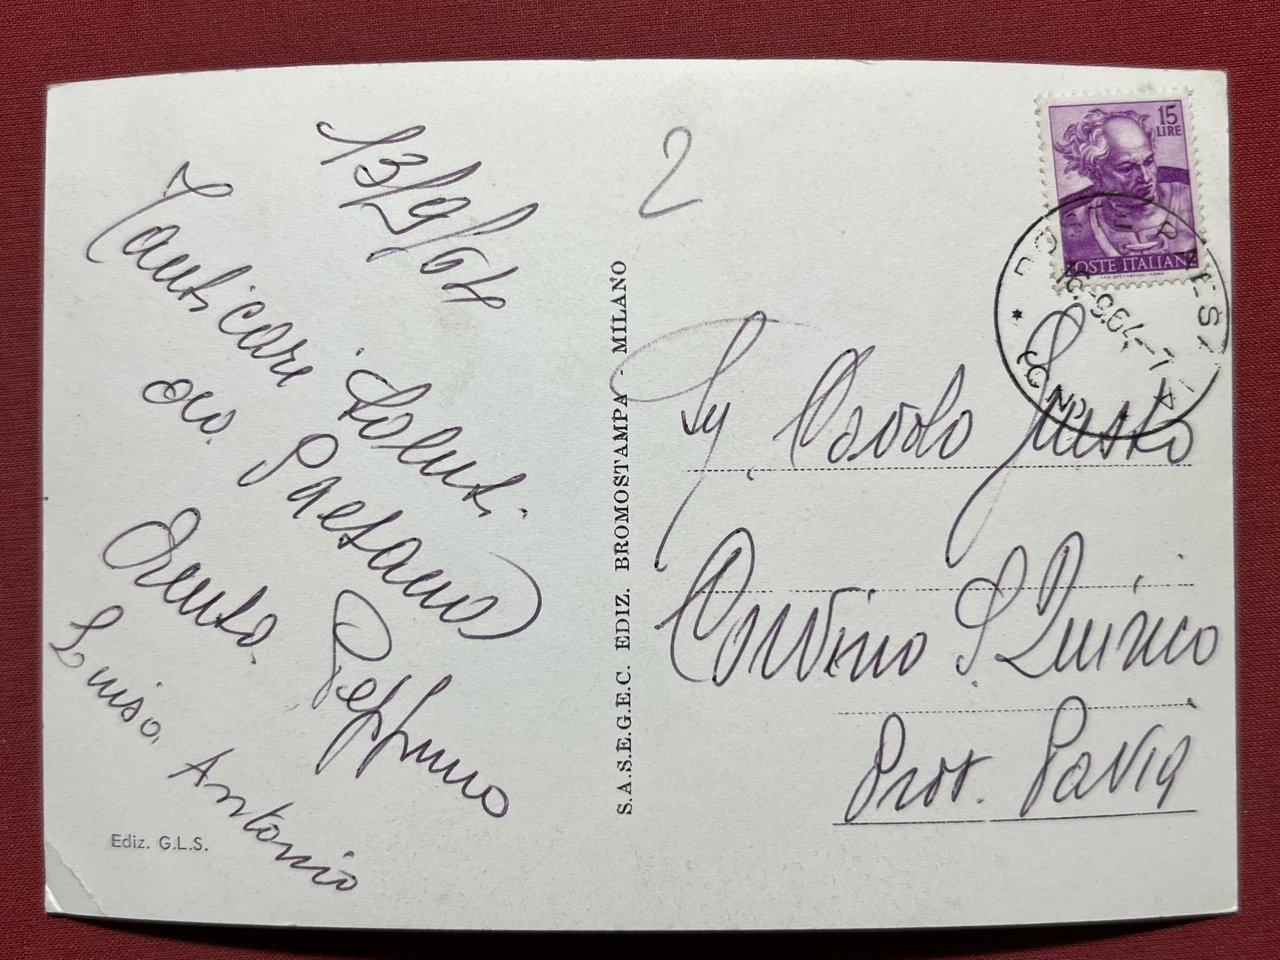 13/9/64
Tanti cari Saluti.
Gaetano
Peppino
Luisa. Antonio
Ediz. G.L.S.
S.A.S.E.G.E.C. EDIZ. BROMOSTAMPA - MILANO
2
15
LIRE
POSTE ITALIANE
16.-9.64.-7
Sig. Giusto
Corvino S. Quirico
Prov. Pavia